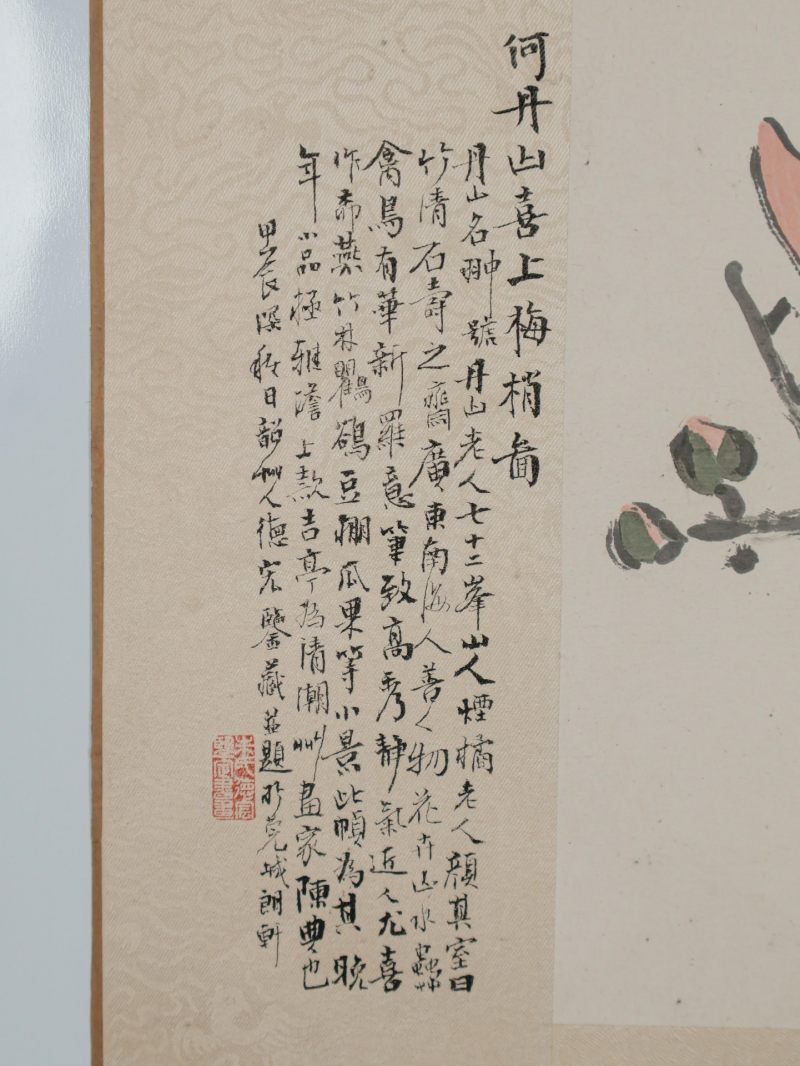 何丹山喜上梅梢畐
丹山名翀號丹山老人七十二峯山人煙橘老人顏其室曰
竹清石壽之齋廣東南海人善人物花卉山水蟲
禽鳥有華新羅意筆致高秀靜氣近人尤喜
作 燕竹林 豆棚瓜果等小景此幀為其晚
年小品極雅澹上款吉亭為清潮州畫家陳典也
甲辰深秋日韶州人德宏鑒藏並題於莞城朗軒